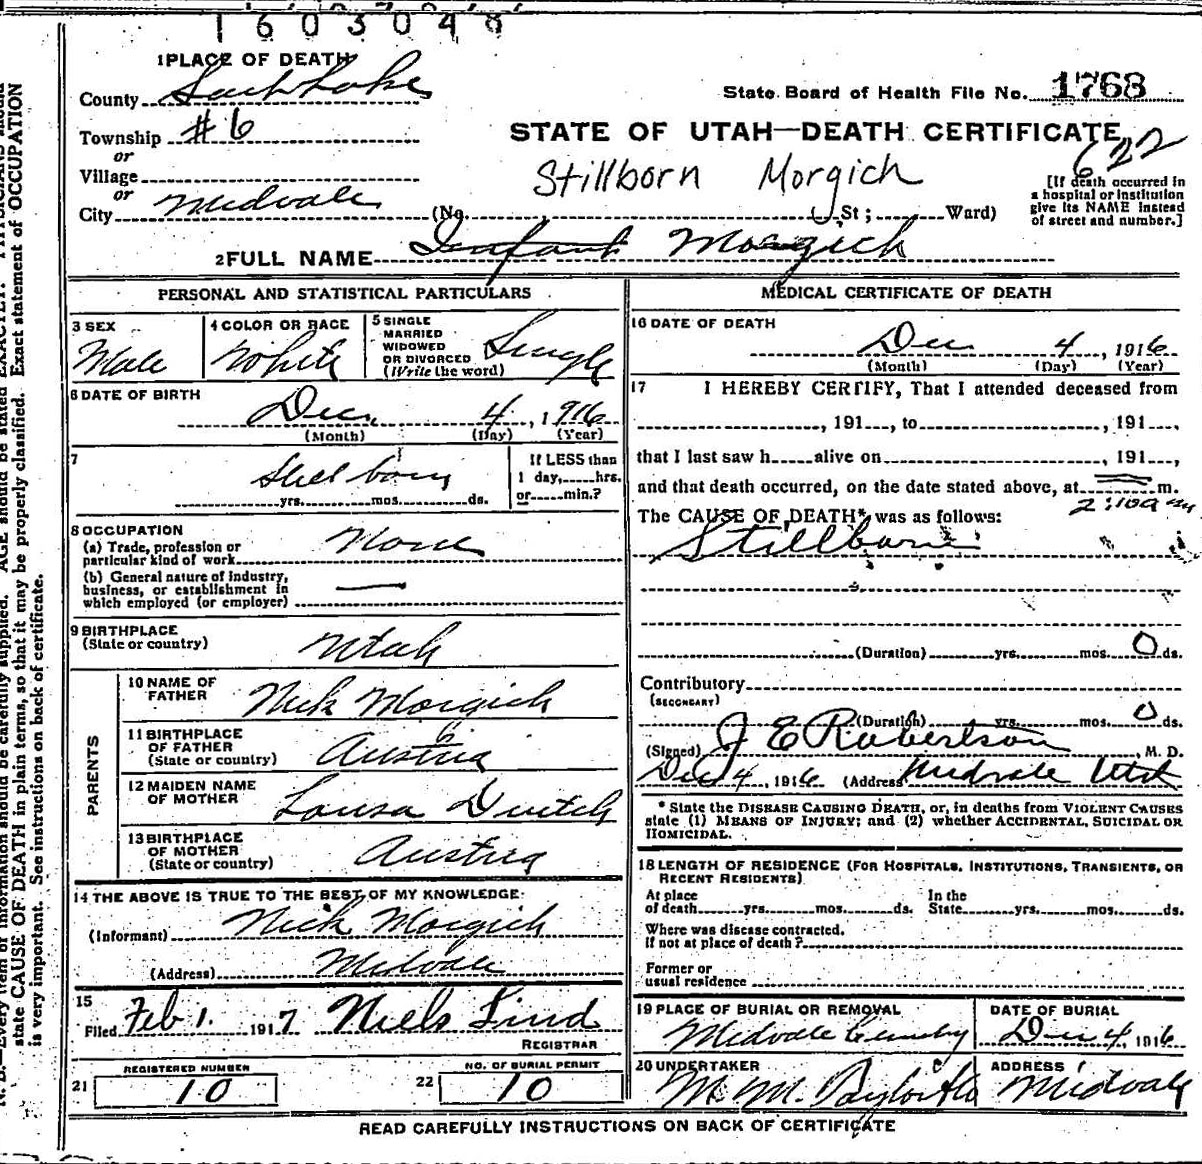 1603048
1 PLACE OF DEATH
County Salt Lake
State Board of Health File No. 1768
Township #6
or
STATE OF UTAH—DEATH CERTIFICATE
622
Village
or
Stillborn Morgich
City Midvale (No. St; Ward)
[If death occurred in
a hospital or institution
give its NAME instead
of street and number.]
2 FULL NAME Infant Morgich
PERSONAL AND STATISTICAL PARTICULARS
3 SEX
Male
4 COLOR OR RACE
White
5 SINGLE
MARRIED
WIDOWED
OR DIVORCED
(Write the word)
Single
6 DATE OF BIRTH
Dec. 4, 1916
(Month) (Day) (Year)
7
Stillborn
yrs. mos. ds.
If LESS than
1 day, hrs.
or min.?
8 OCCUPATION
(a) Trade, profession or
particular kind of work None
(b) General nature of industry,
business, or establishment in
which employed (or employer) —
9 BIRTHPLACE
(State or country) Utah
PARENTS
10 NAME OF
FATHER Nick Morgich
11 BIRTHPLACE
OF FATHER
(State or country) Austria
12 MAIDEN NAME
OF MOTHER
13 BIRTHPLACE
OF MOTHER
(State or country) Austria
14 THE ABOVE IS TRUE TO THE BEST OF MY KNOWLEDGE:
(Informant) Nick Morgich
(Address) Midvale
15
Filed Feb 1. 1917 Niels Lind
REGISTRAR
21
REGISTERED NUMBER
10
22
NO. OF BURIAL PERMIT
10
MEDICAL CERTIFICATE OF DEATH
16 DATE OF DEATH
Dec 4, 1916
(Month) (Day) (Year)
17 I HEREBY CERTIFY, That I attended deceased from
, 191 , to , 191 ,
that I last saw h alive on , 191 ,
and that death occurred, on the date stated above, at m.
2:10 a m
The CAUSE OF DEATH* was as follows:
Stillborn
(Duration) yrs. mos. 0 ds.
Contributory
(SECONDARY)
(Duration) yrs. mos. 0 ds.
(Signed) J E Robertson M. D.
Dec 4, 1916 (Address) Midvale Utah
* State the DISEASE CAUSING DEATH, or, in deaths from VIOLENT CAUSES
state (1) MEANS OF INJURY; and (2) whether ACCIDENTAL, SUICIDAL OR
HOMICIDAL.
18 LENGTH OF RESIDENCE (FOR HOSPITALS, INSTITUTIONS, TRANSIENTS, OR
RECENT RESIDENTS)
At place
of death yrs. mos. ds.
In the
State yrs. mos. ds.
Where was disease contracted,
if not at place of death?
Former or
usual residence
19 PLACE OF BURIAL OR REMOVAL
Midvale
DATE OF BURIAL
Dec 4, 1916
20 UNDERTAKER
M. M.
ADDRESS
Midvale
READ CAREFULLY INSTRUCTIONS ON BACK OF CERTIFICATE
state CAUSE OF DEATH in plain terms, so that it may be properly classified. Exact statement of OCCUPATION
is very important. See instructions on back of certificate.